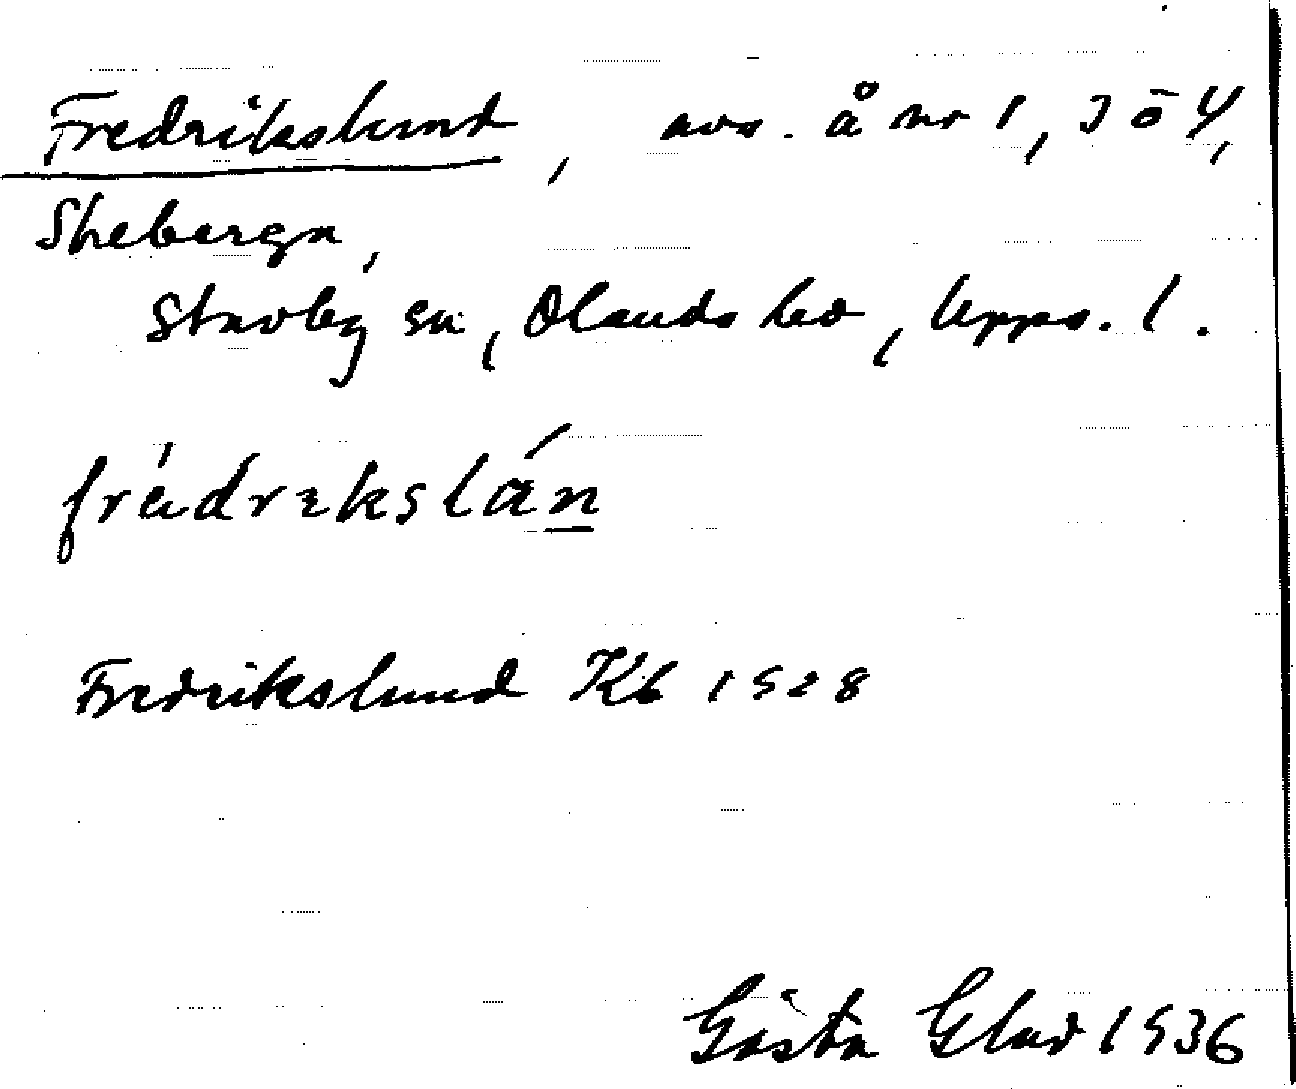 Fredrikslund, avs. å nr 1, 3 o 4,
Skeberga,
Stavby sn, Olands hd, Upps. l.
frédrɩkslán
Fredrikslund Kb 1928
Gösta Glad 1936